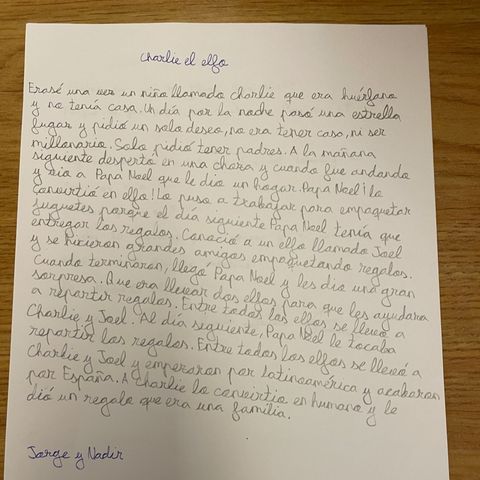 Charlie el elfo
Erasé una vez un niño llamado Charlie que era huérfano
y no tenía casa. Un día por la noche pasó una estrella
fugaz y pidió un solo deseo, no era tener casa, ni ser
millonario. Solo pidió tener padres. A la mañana
siguiente despertó en una choza y cuando fue andando
y vio a Papá Noel que le dio un hogar. Papá Noel ¡lo
convirtió en elfo! Lo puso a trabajar para empaquetar
juguetes porque el día siguiente Papá Noel tenía que
entregar los regalos. Conoció a un elfo llamado Joel
y se hicieron grandes amigos empaquetando regalos.
Cuando terminaron, llegó Papá Noel y les dio una gran
sorpresa. Que era llevar dos elfos para que les ayudara
a repartir regalos. Entre todos los elfos se llevó a
Charlie y Joel. Al día siguiente, Papá Noel le tocaba
repartir los regalos. Entre todos los elfos se llevó a
Charlie y Joel y empezaron por latinoamérica y acabaron
por España. A Charlie lo convirtio en humano y le
dió un regalo que era una familia.
Jorge y Nadir